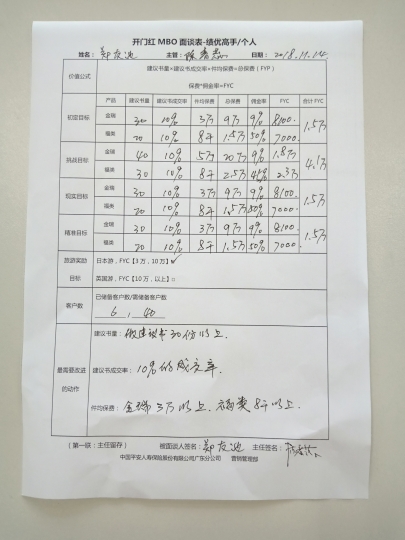 开门红 MBO 面谈表-绩优高手/个人
姓名： 郑友池 主管： 日期： 2018.11.14.
价值公式 建议书量×建议书成交率×件均保费=总保费（FYP）
保费*佣金率=FYC
产品 建议书量 建议书成交率 件均保费 总保费 佣金率 FYC 合计 FYC
初定目标 金瑞 30 10% 3万 9万 9% 8100 1.5万
福类 20 10% 8千 1.5万 50% 7000
挑战目标 金瑞 40 10% 5万 20万 9% 1.8万 4.1万
福类 30 10% 8千 2.5万 2.3万
现实目标 金瑞 30 10% 3万 9万 9% 8100 1.5万
福类 20 10% 8千 1.5万 50% 7000
精准目标 金瑞 30 10% 3万 9万 9% 8100 1.5万
福类 20 10% 8千 1.5万 50% 7000
旅游奖励目标 日本游，FYC【3万，10万】✓
英国游，FYC【10万，以上】□
客户数 已储备客户数/需储备客户数
6 , 40
最需要改进的动作 建议书量： 做建议书30份以上.
建议书成交率： 10%的成交率.
件均保费： 金瑞3万以上. 福类8千以上.
（第一联：主任留存） 被面谈人签名： 郑友池 主任签名：
中国平安人寿保险股份有限公司广东分公司 营销管理部